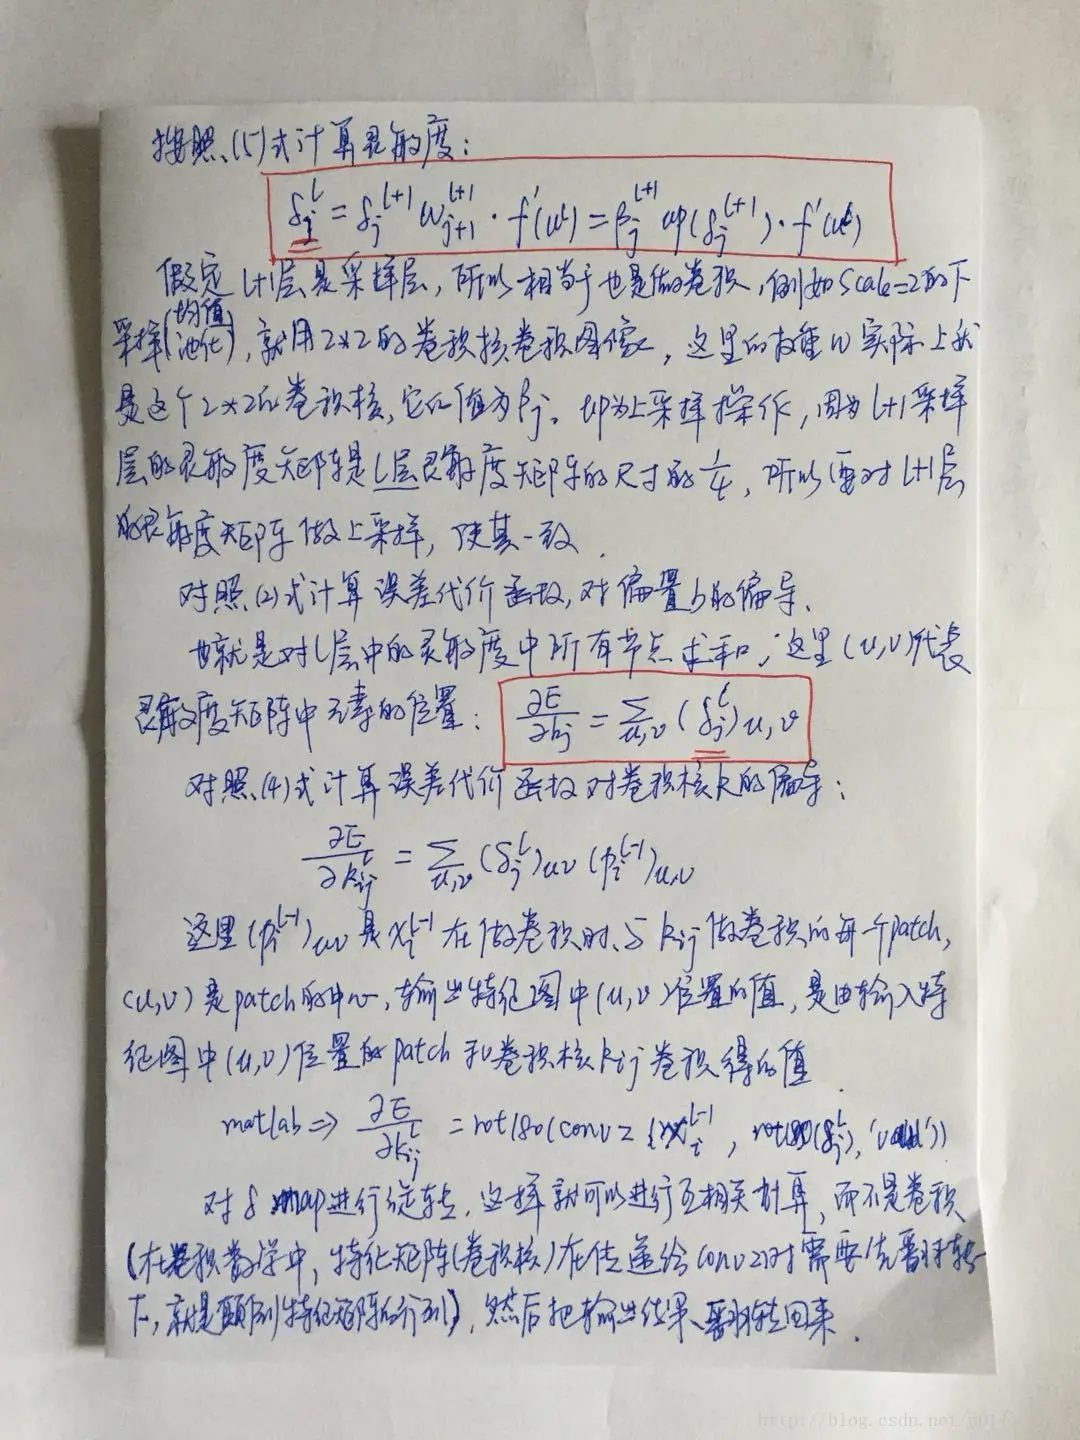 按照(5)式计算灵敏度:
δ_j^l = δ_j^{l+1} w_{j+1}^{l+1} · f'(u^l) = β_j^{l+1} up(δ_j^{l+1}) · f'(u^l)
假定 l+1层是采样层, 所以相当于也是做卷积, 例如scale=2的下
采样(均值池化), 就用2*2的卷积核卷积图像, 这里的权重w实际上就
是这个2*2的卷积核, 它的值为βj。 up为上采样操作, 因为l+1采样
层的灵敏度矩阵是l层灵敏度矩阵的尺寸的1/4, 所以要对l+1层
的灵敏度矩阵做上采样, 使其一致.
对照(2)式计算误差代价函数, 对偏置b的偏导.
也就是对l层中的灵敏度中所有节点求和; 这里(u,v)代表
灵敏度矩阵中元素的位置: ∂E/∂b_j = Σ_{u,v} (δ_j^l)_{u,v}
对照(4)式计算误差代价函数对卷积核k的偏导:
∂E/∂k_{ij}^l = Σ_{u,v} (δ_j^l)_{uv} (p_i^{l-1})_{u,v}
这里(p_i^{l-1})_{uv}是x_i^{l-1}在做卷积时、与kij做卷积的每一个patch,
(u,v)是patch的中心, 输出特征图中(u,v)位置的值, 是由输入特
征图中(u,v)位置的patch和卷积核kij卷积得的值.
matlab ⇒ ∂E/∂k_{ij}^l = rot180(conv2(x_i^{l-1}, rot180(δ_j^l), 'valid'))
对δ map进行旋转, 这样就可以进行互相关计算, 而不是卷积
(在卷积数学中, 特征矩阵(卷积核)在传递给conv2时需要先翻转一
下, 就是颠倒特征矩阵的行列), 然后把输出结果翻转回来.